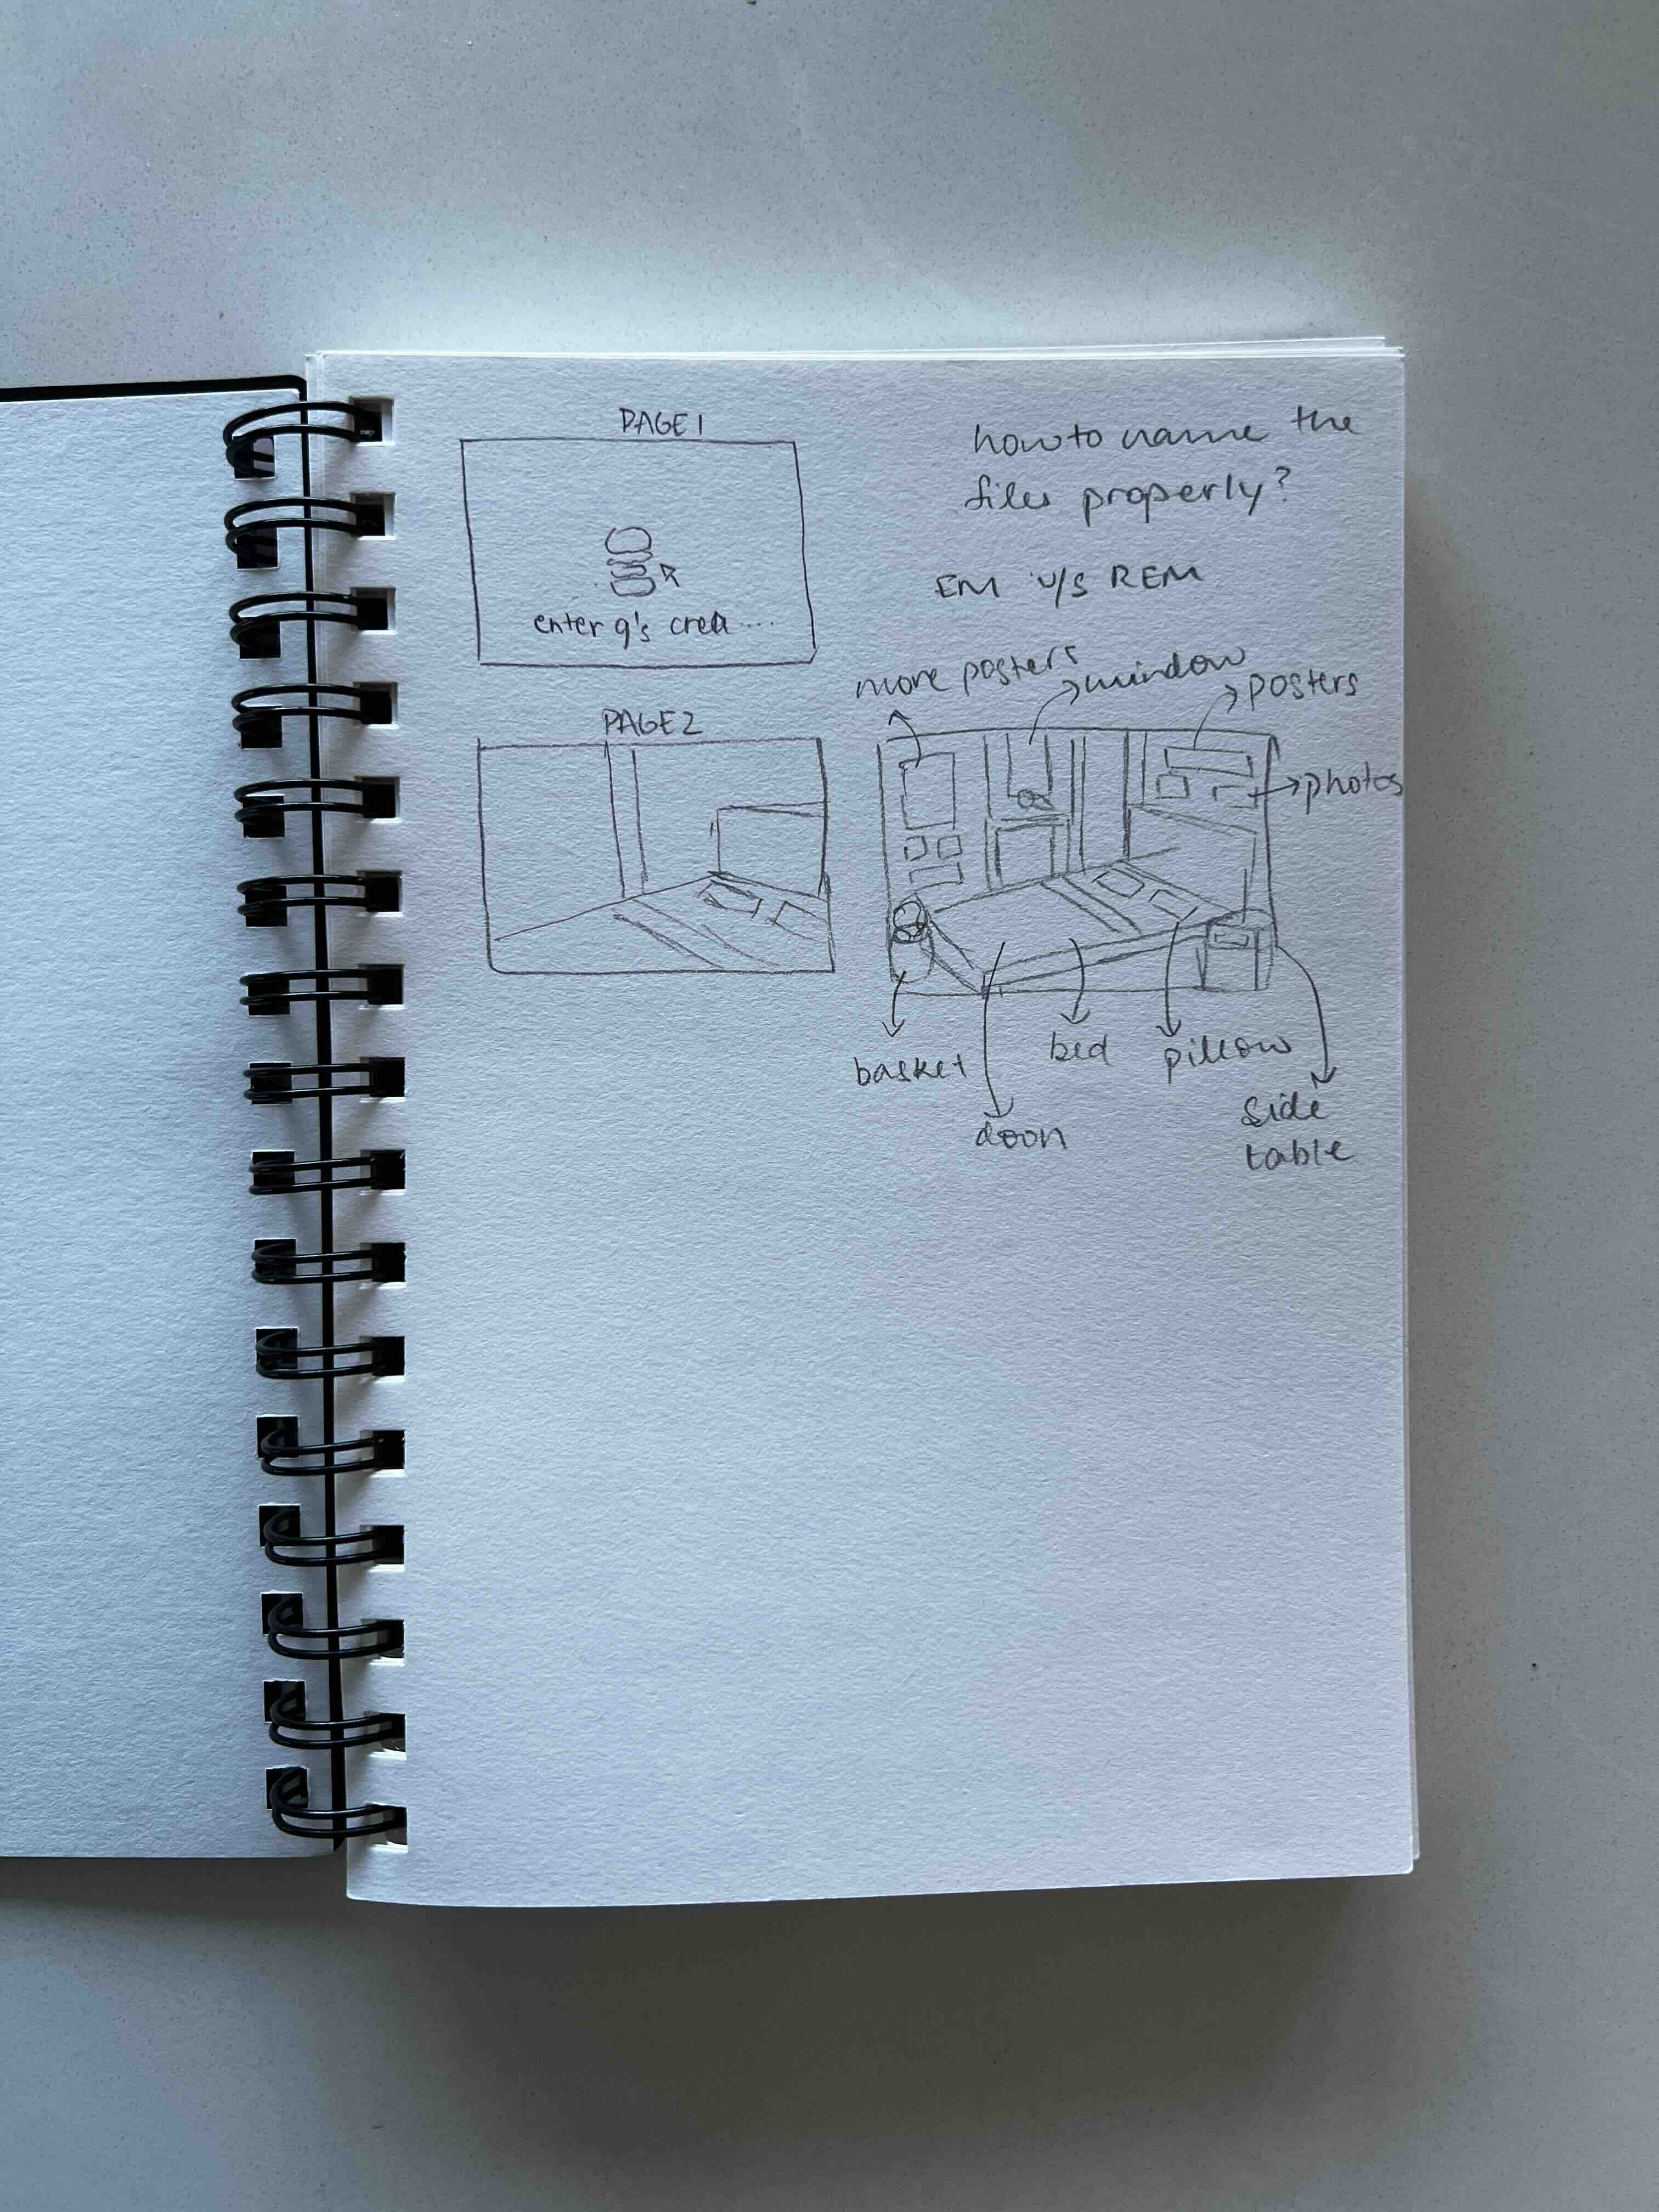 PAGE 1
enter g's crea ....
PAGE 2
how to name the
files properly?
EM v/s REM
more posters
window
posters
photos
basket
doon
bed
pillow
side
table